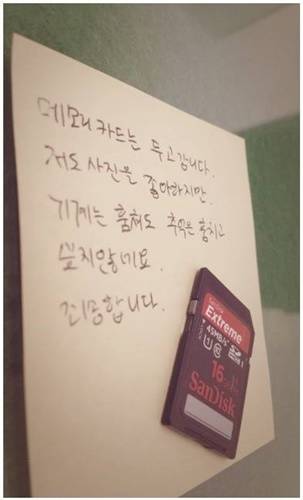 메모리 카드는 두고 갑니다.
저도 사진을 좋아하지만.
기계는 훔쳐도 추억은 훔치고
싶지않네요.
죄송합니다.
SanDisk
Extreme
45MB/s
16
SanDisk